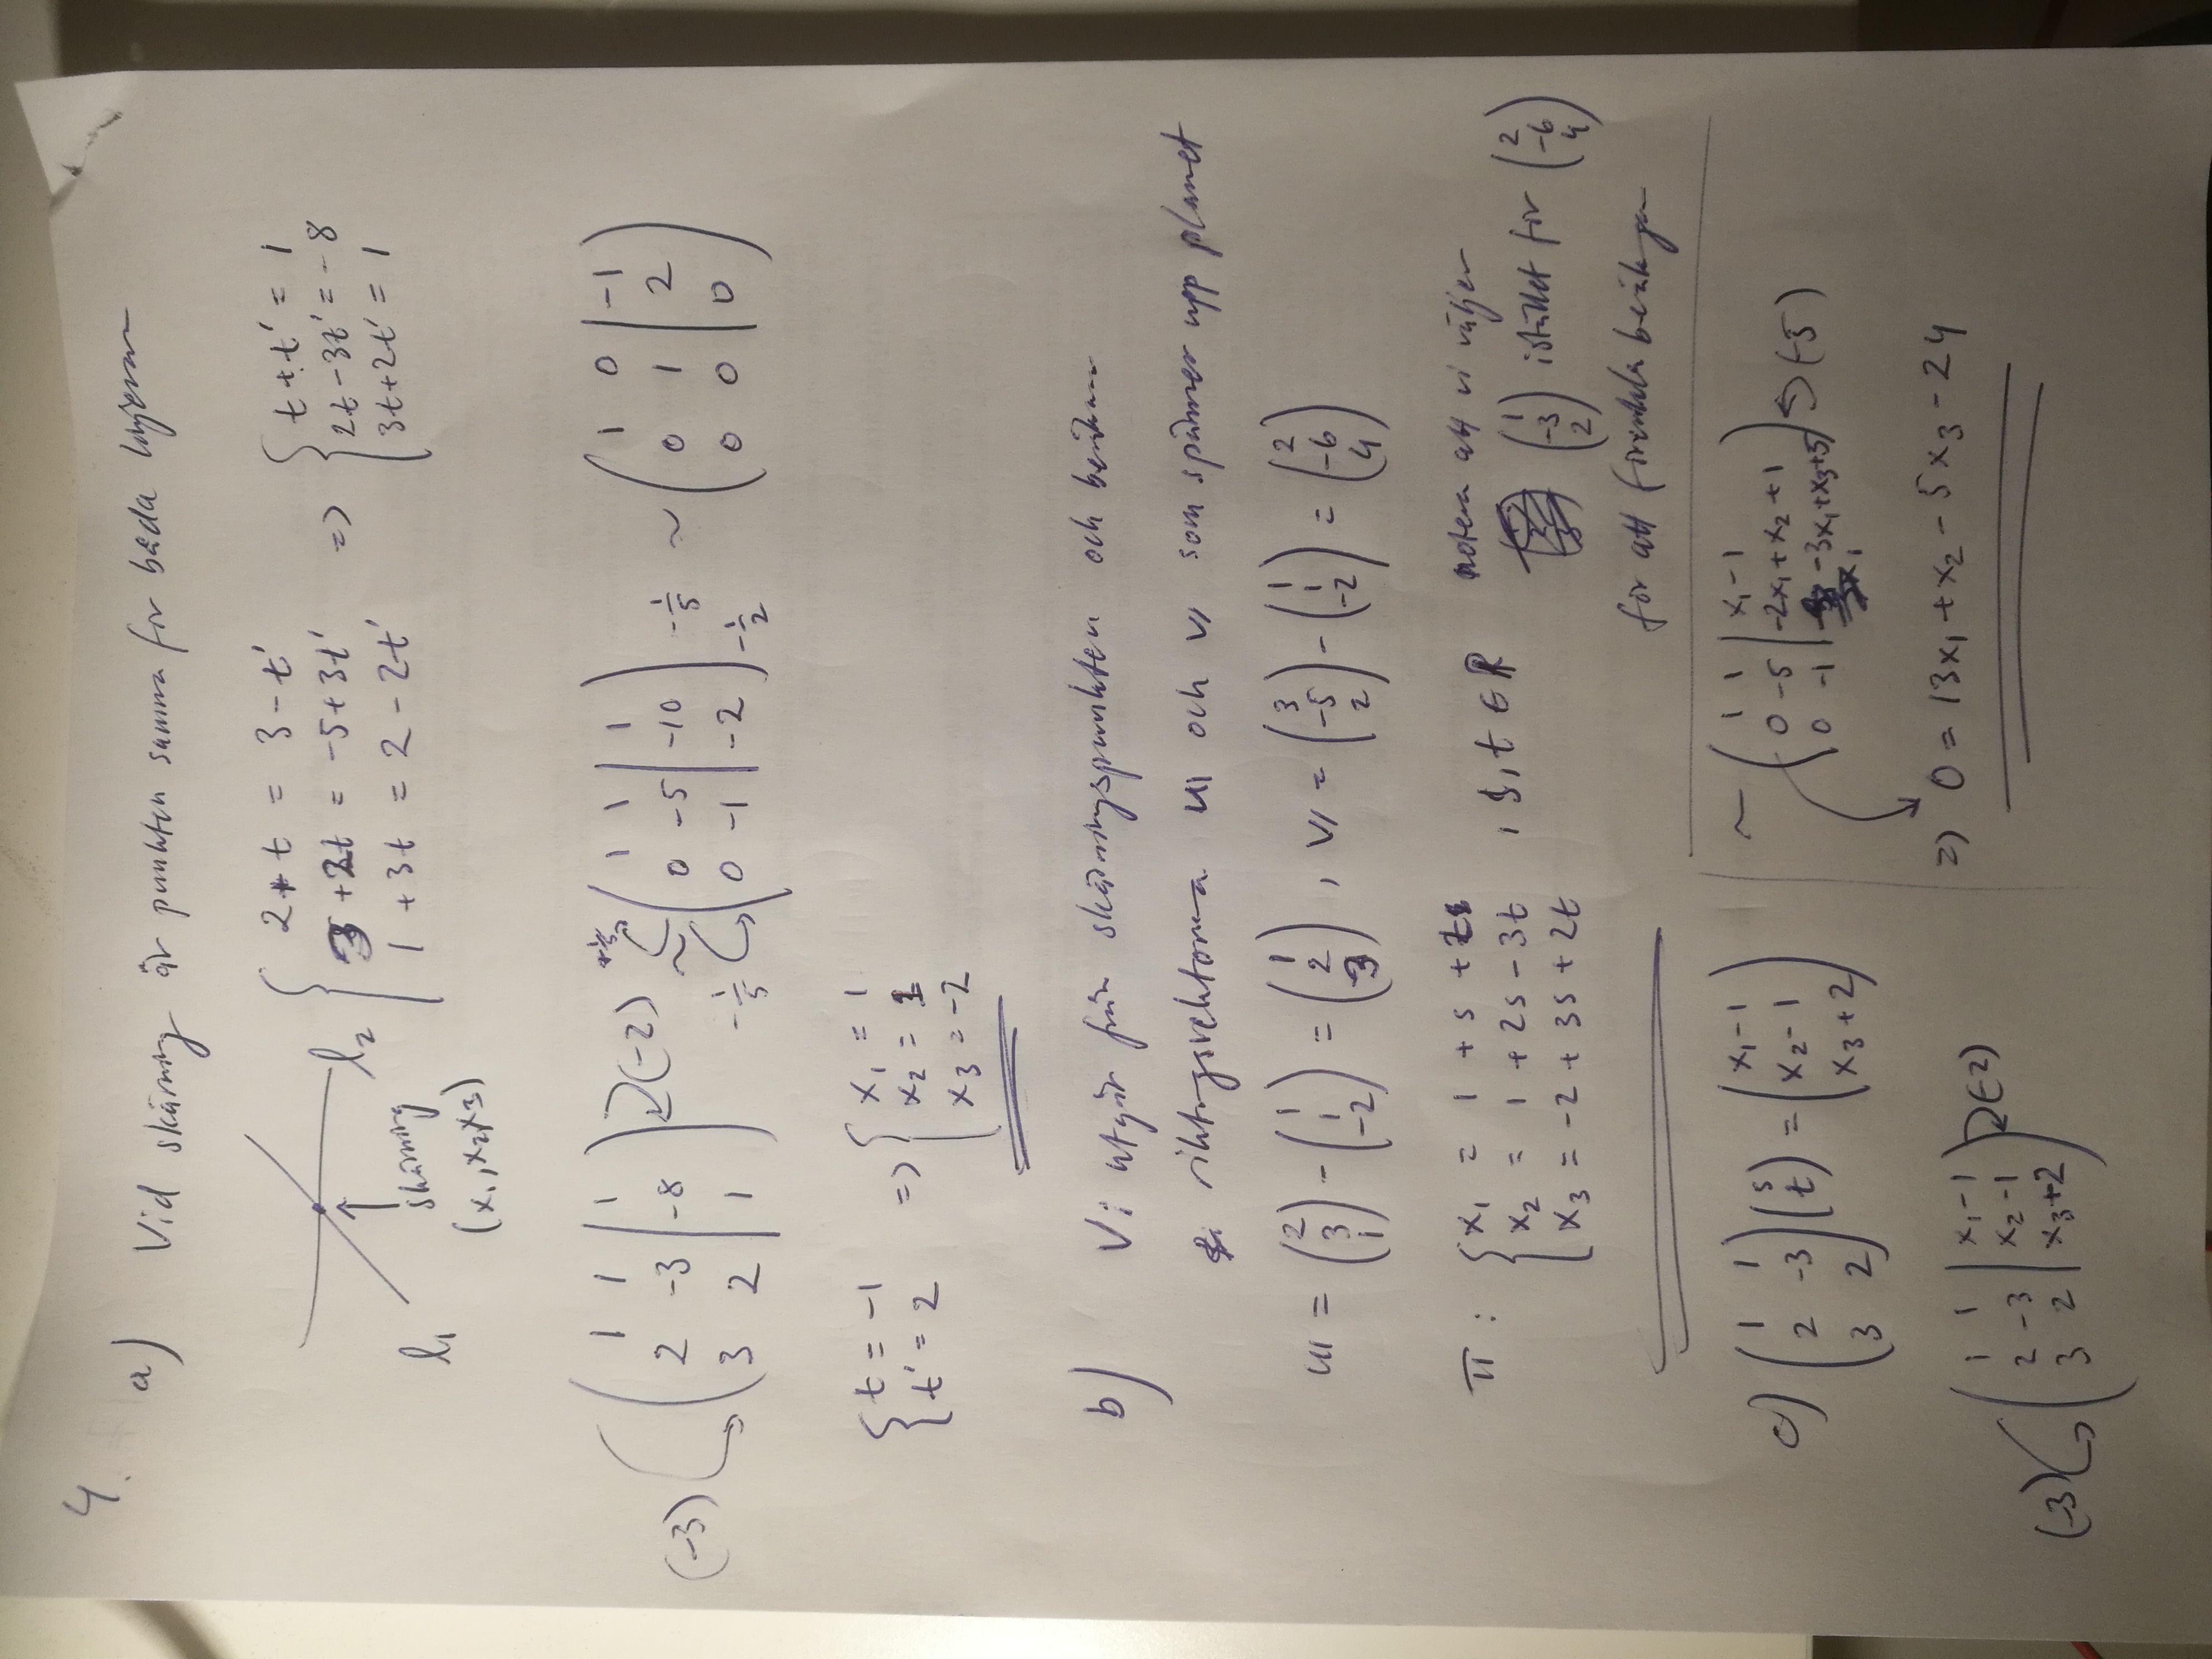 4.
a) Vid skärning är punkten samma för båda linjerna
l₁
l₂
skärning
(x₁, x₂, x₃)
{ 2 + t = 3 - t'
3 + 2t = -5 + 3t'
1 + 3t = 2 - 2t'
=> { t + t' = 1
2t - 3t' = -8
3t + 2t' = 1
(-3) ( 1 1 | 1
2 -3 | -8
3 2 | 1 ) (-2)
~ -1/5 ( 1 1 | 1
0 -5 | -10
0 -1 | -2 ) -1/5 -1/2
~ ( 1 0 | -1
0 1 | 2
0 0 | 0 )
{ t = -1
t' = 2
=> { x₁ = 1
x₂ = 1
x₃ = -2
b) Vi utgår från skärningspunkten och beräknar
riktningsvektorerna u och v som spänner upp planet
u = (2 3 1) - (1 1 -2) = (1 2 3), v = (3 -5 2) - (1 1 -2) = (2 -6 4)
π: { x₁ = 1 + s + t
x₂ = 1 + 2s - 3t , s, t ∈ ℝ
x₃ = -2 + 3s + 2t
notera att vi väljer
(1 -3 2) istället för (2 -6 4)
för att förenkla beräkningen
c) ( 1 1
2 -3
3 2 ) (s t) = ( x₁ - 1
x₂ - 1
x₃ + 2 )
(-3) ( 1 1 | x₁ - 1
2 -3 | x₂ - 1
3 2 | x₃ + 2 ) (-2)
~ ( 1 1 | x₁ - 1
0 -5 | -2x₁ + x₂ + 1
0 -1 | -3x₁ + x₃ + 5 ) (-5)
=> 0 = 13x₁ + x₂ - 5x₃ - 24